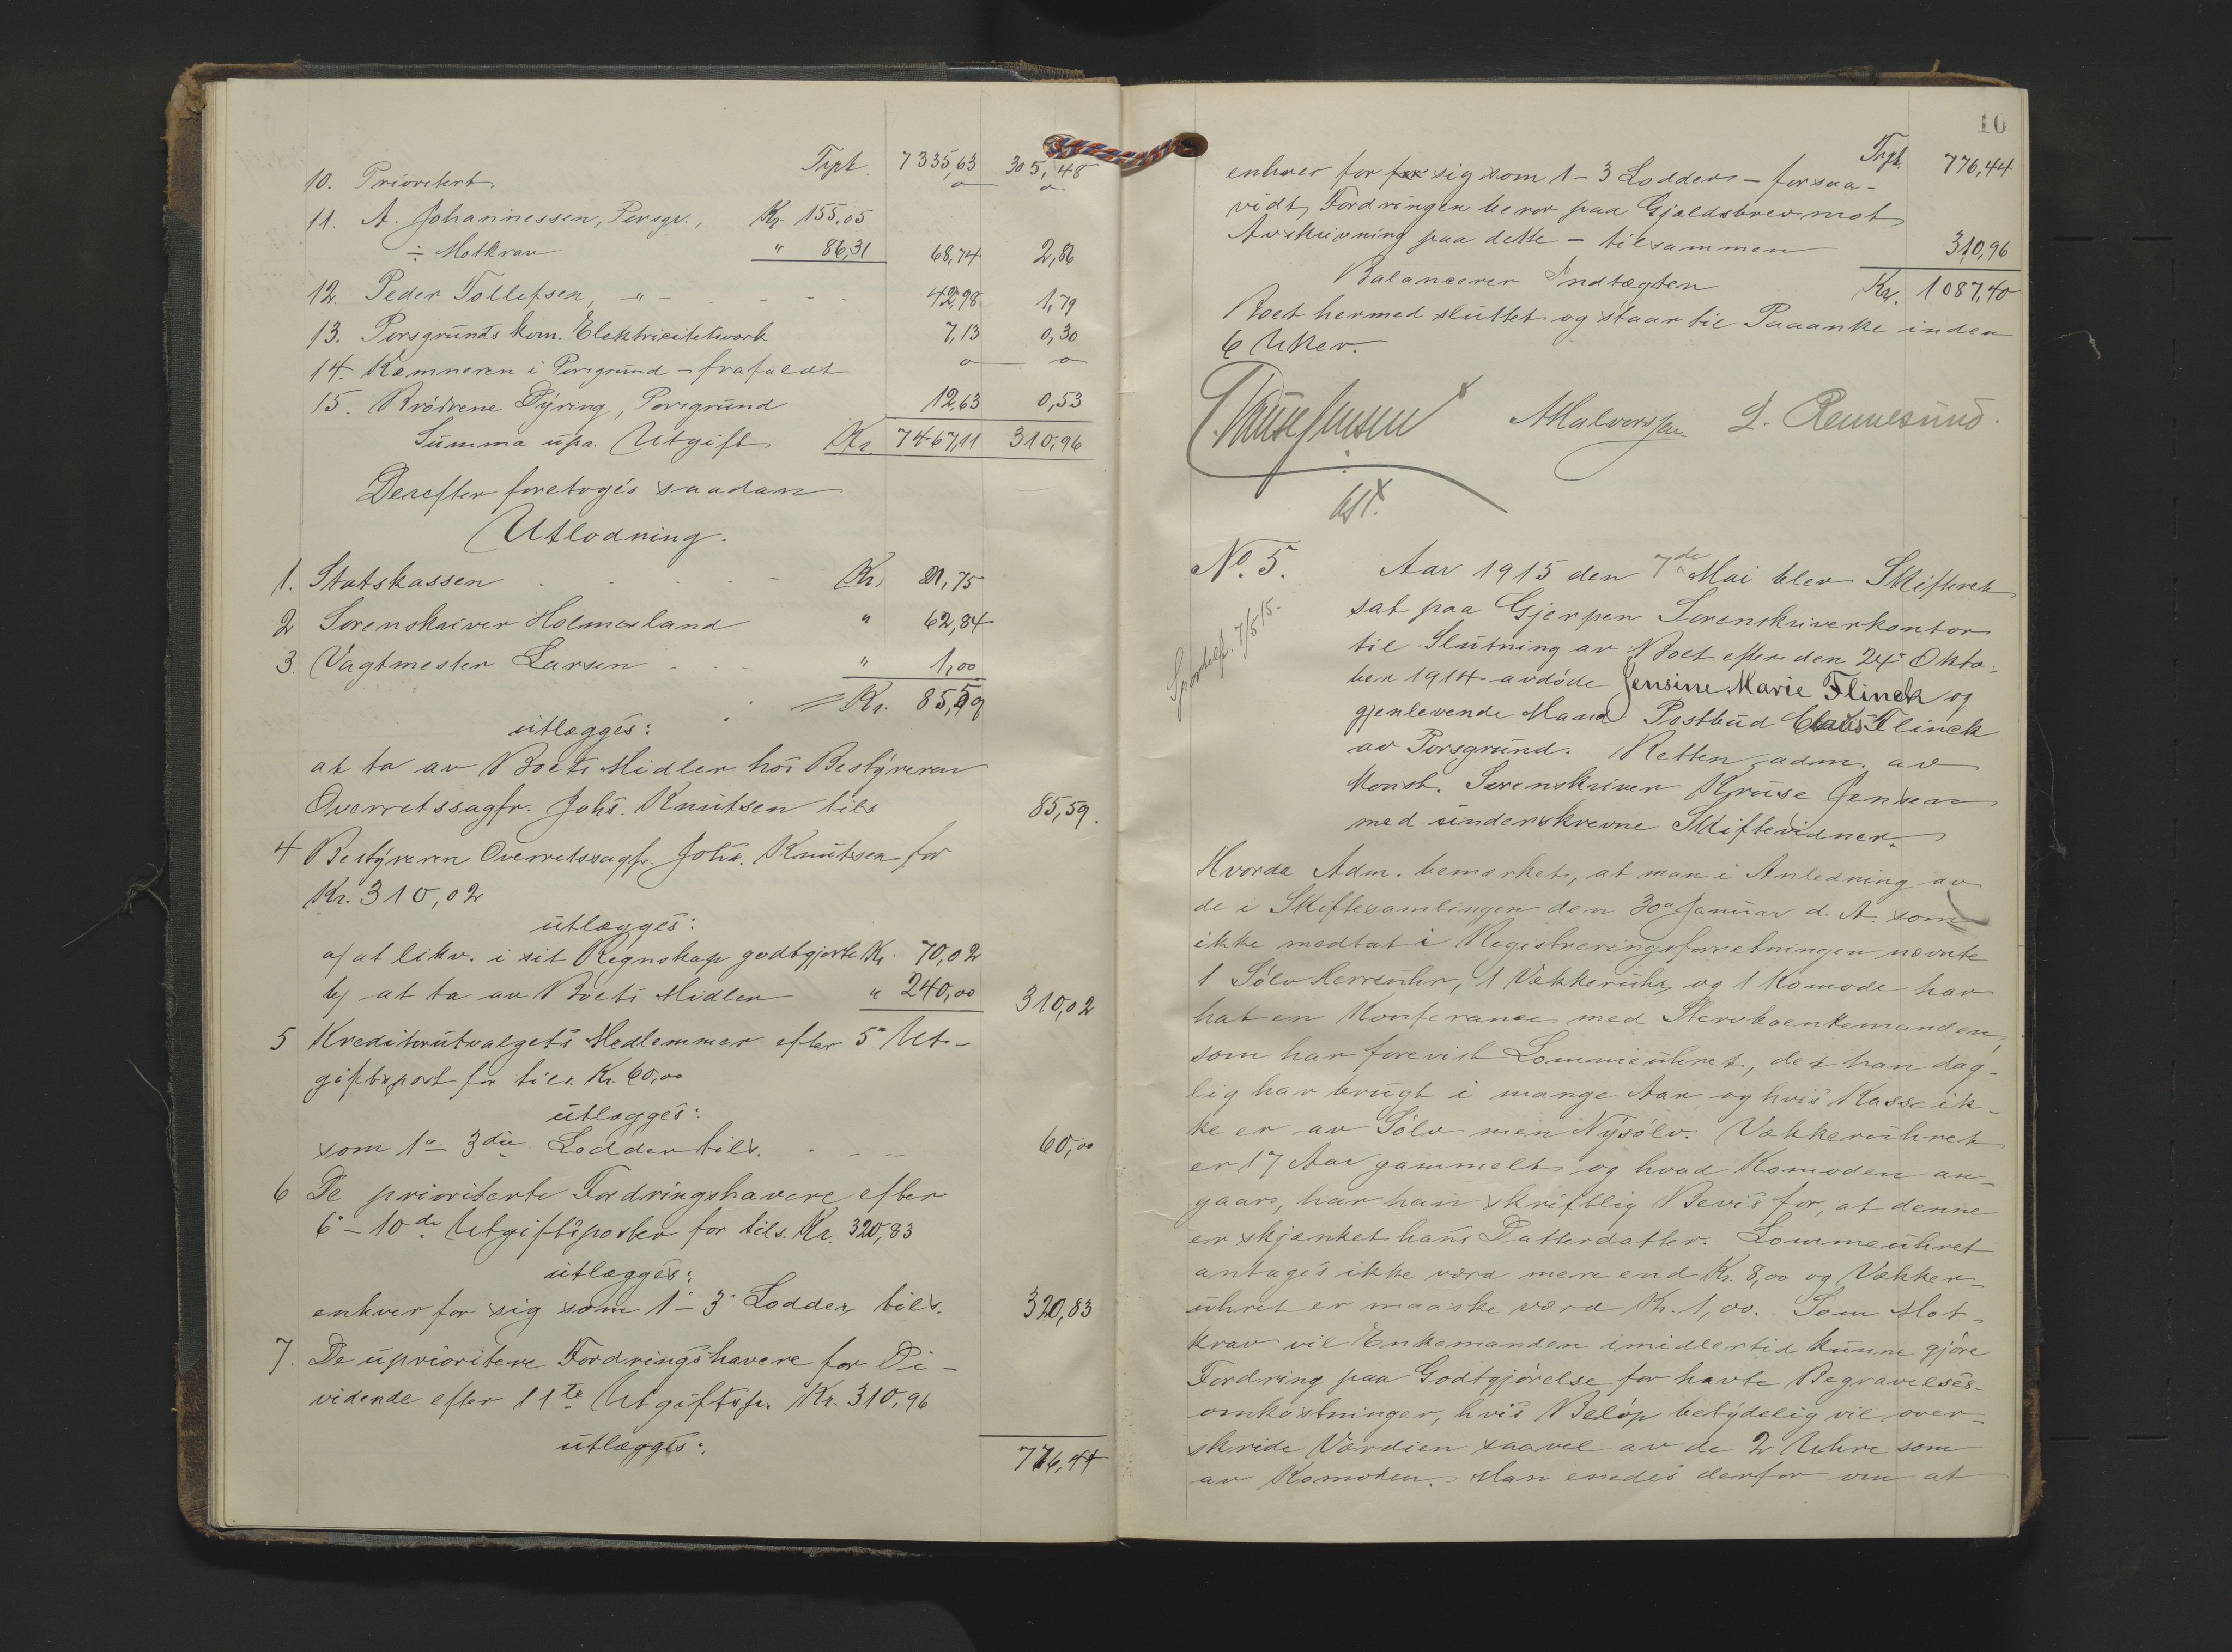 Trpt. 7335,63 305,48
10. Prioritert. o o
11. A. Johannessen, Porsgr., Kr. 155,05
÷ Motkrav " 86,31 68,74 2,86
12. Peder Tollefsen, -"- 42,98 1,79
13. Porsgrunds kom. Elektricitetsverk 7,13 0,30
14. Kæmneren i Porsgrund - frafaldt o o
15. Brødrene Dyring, Porsgrund 12,63 0,53
Summa upr. Utgift Kr. 7467,11 310,96
Derefter foretoges saadan
Utlodning.
1. Statskassen Kr. 21,75
2 Sorenskriver Holmesland " 62,84
3. Vagtmester Larsen " 1,00
= Kr. 85,59
utlægges:
at ta av Boets Midler hos Bestyreren
Overretssagfr. Johs. Knutsen tils 85,59.
4 Bestyreren Overretssagfr. Johs. Knutsen for
Kr. 310,02
utlægges:
a) at likv. i sit Regnskap godtgjorte Kr. 70,02
b) at ta av Boets Midler " 240,00 310,02
5 Kreditorutvalgets Medlemmer efter 5" Ut-
giftspost for tils. Kr. 60,00
utlægges:
som 1ste - 3die Lodder tils. 60,00
6 De prioriterte Fordringshavere efter
6" - 10de Utgiftsposter for tils. Kr. 320,83
utlægges:
enhver for sig som 1" - 3" Lodder tils. 320,83
7. De uprioritere Fordringshavere for Di-
vidende efter 11te Utgiftsp. Kr. 310,96
utlægges:
776,44
10
Trpt. 776,44
enhver for for sig som 1 - 3 Lodder - forsaa-
vidt Fordringen beror paa Gjældsbrev mot
Avskrivning paa dette - tilsammen 310,96
Balancerer Indtægten Kr. 1087,40
Boet hermed sluttet og staar til Paaanke inden
6 Uker.
Kruse Jensen A Halvorsen L. Rennesund.
kst.
No. 5. Aar 1915 den 7de Mai blev Skifteret
sat paa Gjerpen Sorenskriverkontor
til Slutning av Boet efter den 24" Okto-
ber 1914 avdøde Jensine Marie Flinck og
gjenlevende Mand Postbud Claus Flinck
av Porsgrund. Retten adm. av
Konst. Sorenskriver Kruse Jensen
med underskrevne Skiftevidner.
7/5 15.
Hvorda Adm. bemærket, at man i Anledning av
de i Skiftesamlingen den 30" Januar d. A. som
ikke medtat i Registreringsforretningen nævnte
1 Sølv Herreuhr, 1 Vækkeruhr og 1 Komode har
hat en Konferance med Stervboenkemanden,
som har forevist Lommeuhret, det han dag-
lig har brugt i mange Aar og hvis Kasse ik-
ke er av Sølv men Nysølv. Vækkeruhret
er 17 Aar gammelt og hvad Komoden an-
gaar, har han skriftlig Bevis for, at denne
er skjænket hans Datterdatter. Lommeuhret
antages ikke værd mere end Kr. 8,00 og Vækker-
uhret er maaske værd Kr. 1,00. Som Mot-
krav vil Enkemanden imidlertid kunne gjøre
Fordring paa Godtgjørelse for havte Begravelses-
omkostninger, hvis Beløp betydelig vil over-
skride Værdien saavel av de 2 Uhre som
av Komoden. Man enedes derfor om at